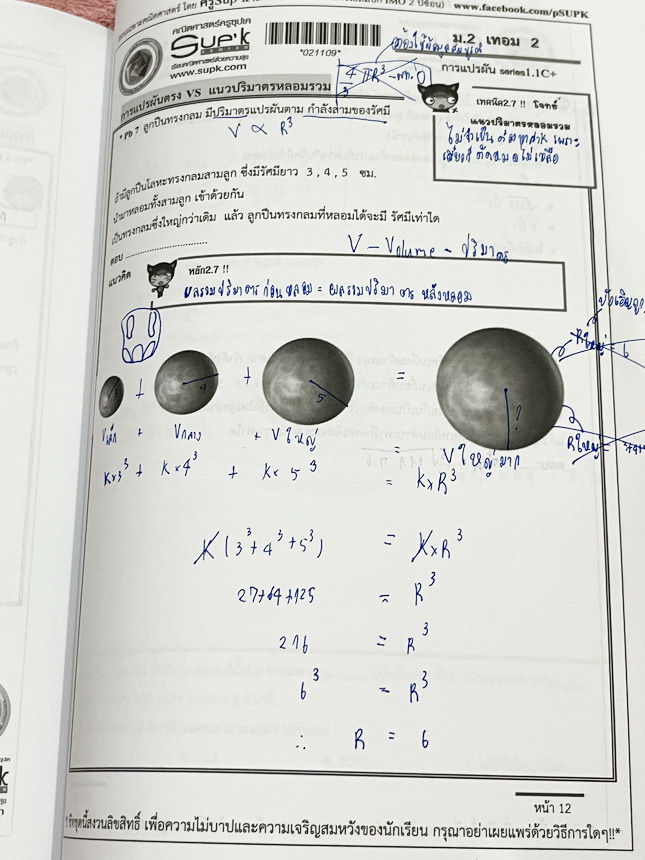 คณิตศาสตร์ โดย ครูSup'k
www.facebook.com/pSUPK
คณิตศาสตร์ครูซุปเค
Sup'k
CENTER
เรียนคณิตศาสตร์ด้วยความสุข
www.supk.com
*021109*
ม.2 , เทอม 2
การแปรผัน series1.1C+
4/3 πR³
การแปรผันตรง VS แนวปริมาตรหลอมรวม
เทคนิค2.7 !! โจทย์
แนวปริมาตรหลอมรวม
* Pb 7 ลูกปืนทรงกลม มีปริมาตรแปรผันตาม กำลังสามของรัศมี
V ∝ R³
ถ้ามีลูกปืนโลหะทรงกลมสามลูก ซึ่งมีรัศมียาว 3 , 4 , 5 ซม.
นำมาหลอมทั้งสามลูก เข้าด้วยกัน
เป็นทรงกลมซึ่งใหญ่กว่าเดิม แล้ว ลูกปืนทรงกลมที่หลอมได้จะมี รัศมีเท่าใด
ตอบ ............................
V - Volume - ปริมาตร
แนวคิด
หลัก2.7 !!
ผลรวมปริมาตรก่อนหลอม = ผลรวมปริมาตร หลังหลอม
3 + 4 + 5 = ?
Vเล็ก + Vกลาง + Vใหญ่ = Vใหญ่มาก
K×3³ + K×4³ + K×5³ = K×R³
K(3³+4³+5³) = K×R³
27+64+125 = R³
216 = R³
6³ = R³
∴ R = 6
หน้า 12
ชุดนี้สงวนลิขสิทธิ์ เพื่อความไม่บาปและความเจริญสมหวังของนักเรียน กรุณาอย่าเผยแพร่ด้วยวิธีการใดๆ!!*